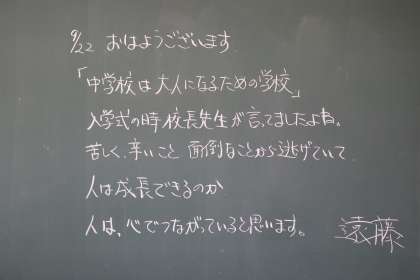 9/22 おはようございます
「中学校は大人になるための学校」
入学式の時校長先生が言ってましたよね。
苦しく、辛いこと 面倒なことから逃げていて
人は成長できるのか
人は、心でつながっていると思います。 遠藤